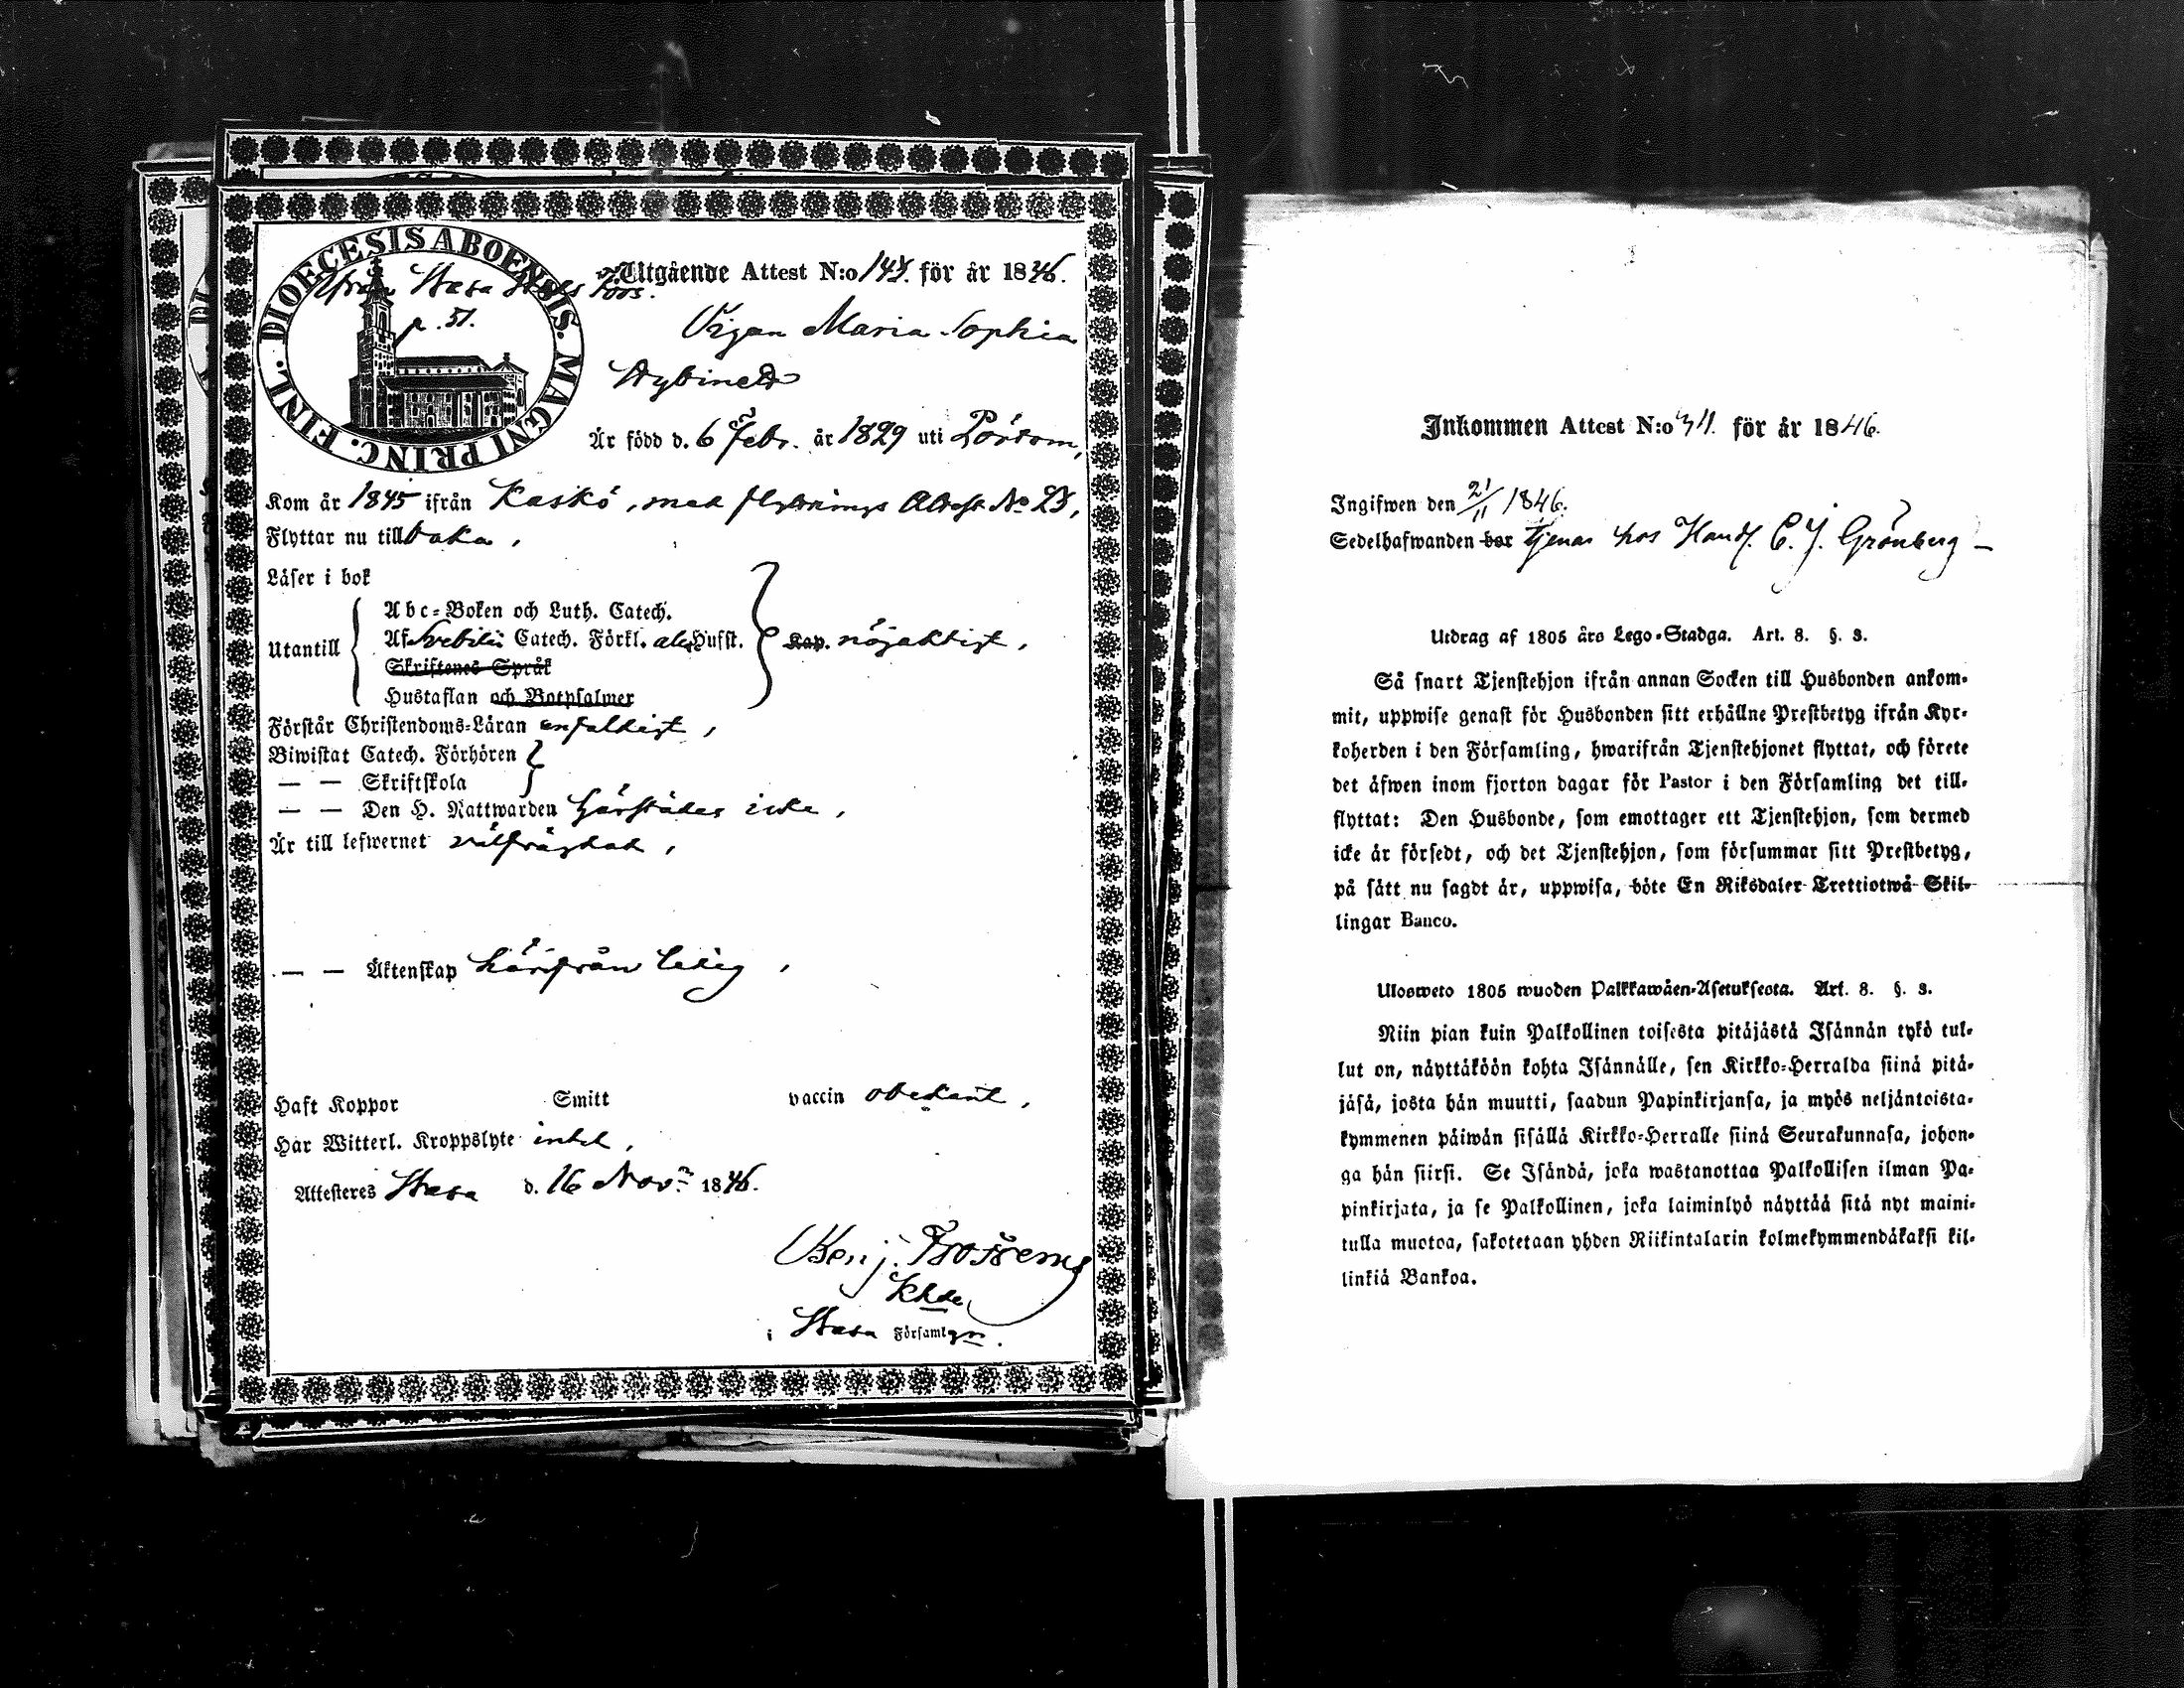 DIOECESIS ABOENSIS. MAGNI PRINC. FINL.
ifrån Wasa Stads
p. 51.
Utgående Attest N:o 144. för år 1846.
Pigan Maria Sophia
Är född d. 6 Febr. år 1829 uti Pörtom,
Kom år 1845 ifrån Kaskö, med flyttnings Attest No 23,
Flyttar nu tillbaka,
Läser i bok
Utantill
Abc-Boken och Luth. Catech.
Af Svebilii Catech. Förkl. Hufst.
Skriftenes Språk
Hustaflan och Botpsalmer
Kap. nöjaktigt,
Förstår Christendoms-Läran enfaldigt,
Biwistat Catech. Förhören
— — Skriftskola
— — Den H. Nattwarden härstädes icke,
Är till lefwernet välfräjdad,
— — Äktenskap härifrån ledig,
Haft Koppor Smitt vaccin obekant,
Har Witterl. Kroppslyte intet,
Attesteres Wasa d. 16 Nov:r 1846.
Benj. Frosterus
Khde
i Wasa Församlgn.
Inkommen Attest N:o 31. för år 1846.
Ingifwen den 21/11 1846.
Sedelhafwanden bor tjenar hos Handl. C. J. Grönberg –
Utdrag af 1805 års Lego-Stadga. Art. 8. §. 3.
Så snart Tjenstehjon ifrån annan Socken till Husbonden ankom-
mit, uppwise genast för Husbonden sitt erhållne Prestbetyg ifrån Kyr-
koherden i den Församling, hwarifrån Tjenstehjonet flyttat, och förete
det äfwen inom fjorton dagar för Pastor i den Församling det till-
flyttat: Den Husbonde, som emottager ett Tjenstehjon, som dermed
icke är försedt, och det Tjenstehjon, som försummar sitt Prestbetyg,
på sätt nu sagdt är, uppwisa, böte En Riksdaler Trettiotwå Skil-
lingar Banco.
Ulosweto 1805 wuoden Palkkawäen-Asetuksesta. Art. 8. §. 3.
Niin pian kuin Palkollinen toisesta pitäjästä Isännän tykö tul-
lut on, näyttäköön kohta Isännälle, sen Kirkko-Herralda siinä pitä-
jäsä, josta hän muutti, saadun Papinkirjansa, ja myös neljäntoista-
kymmenen päiwän sisällä Kirkko-Herralle siinä Seurakunnasa, johon-
ga hän siirsi. Se Isändä, joka wastanottaa Palkollisen ilman Pa-
pinkirjata, ja se Palkollinen, joka laiminlyö näyttää sitä nyt maini-
tulla muotoa, sakotetaan yhden Riikintalarin kolmekymmendäkaksi kil-
linkiä Bankoa.